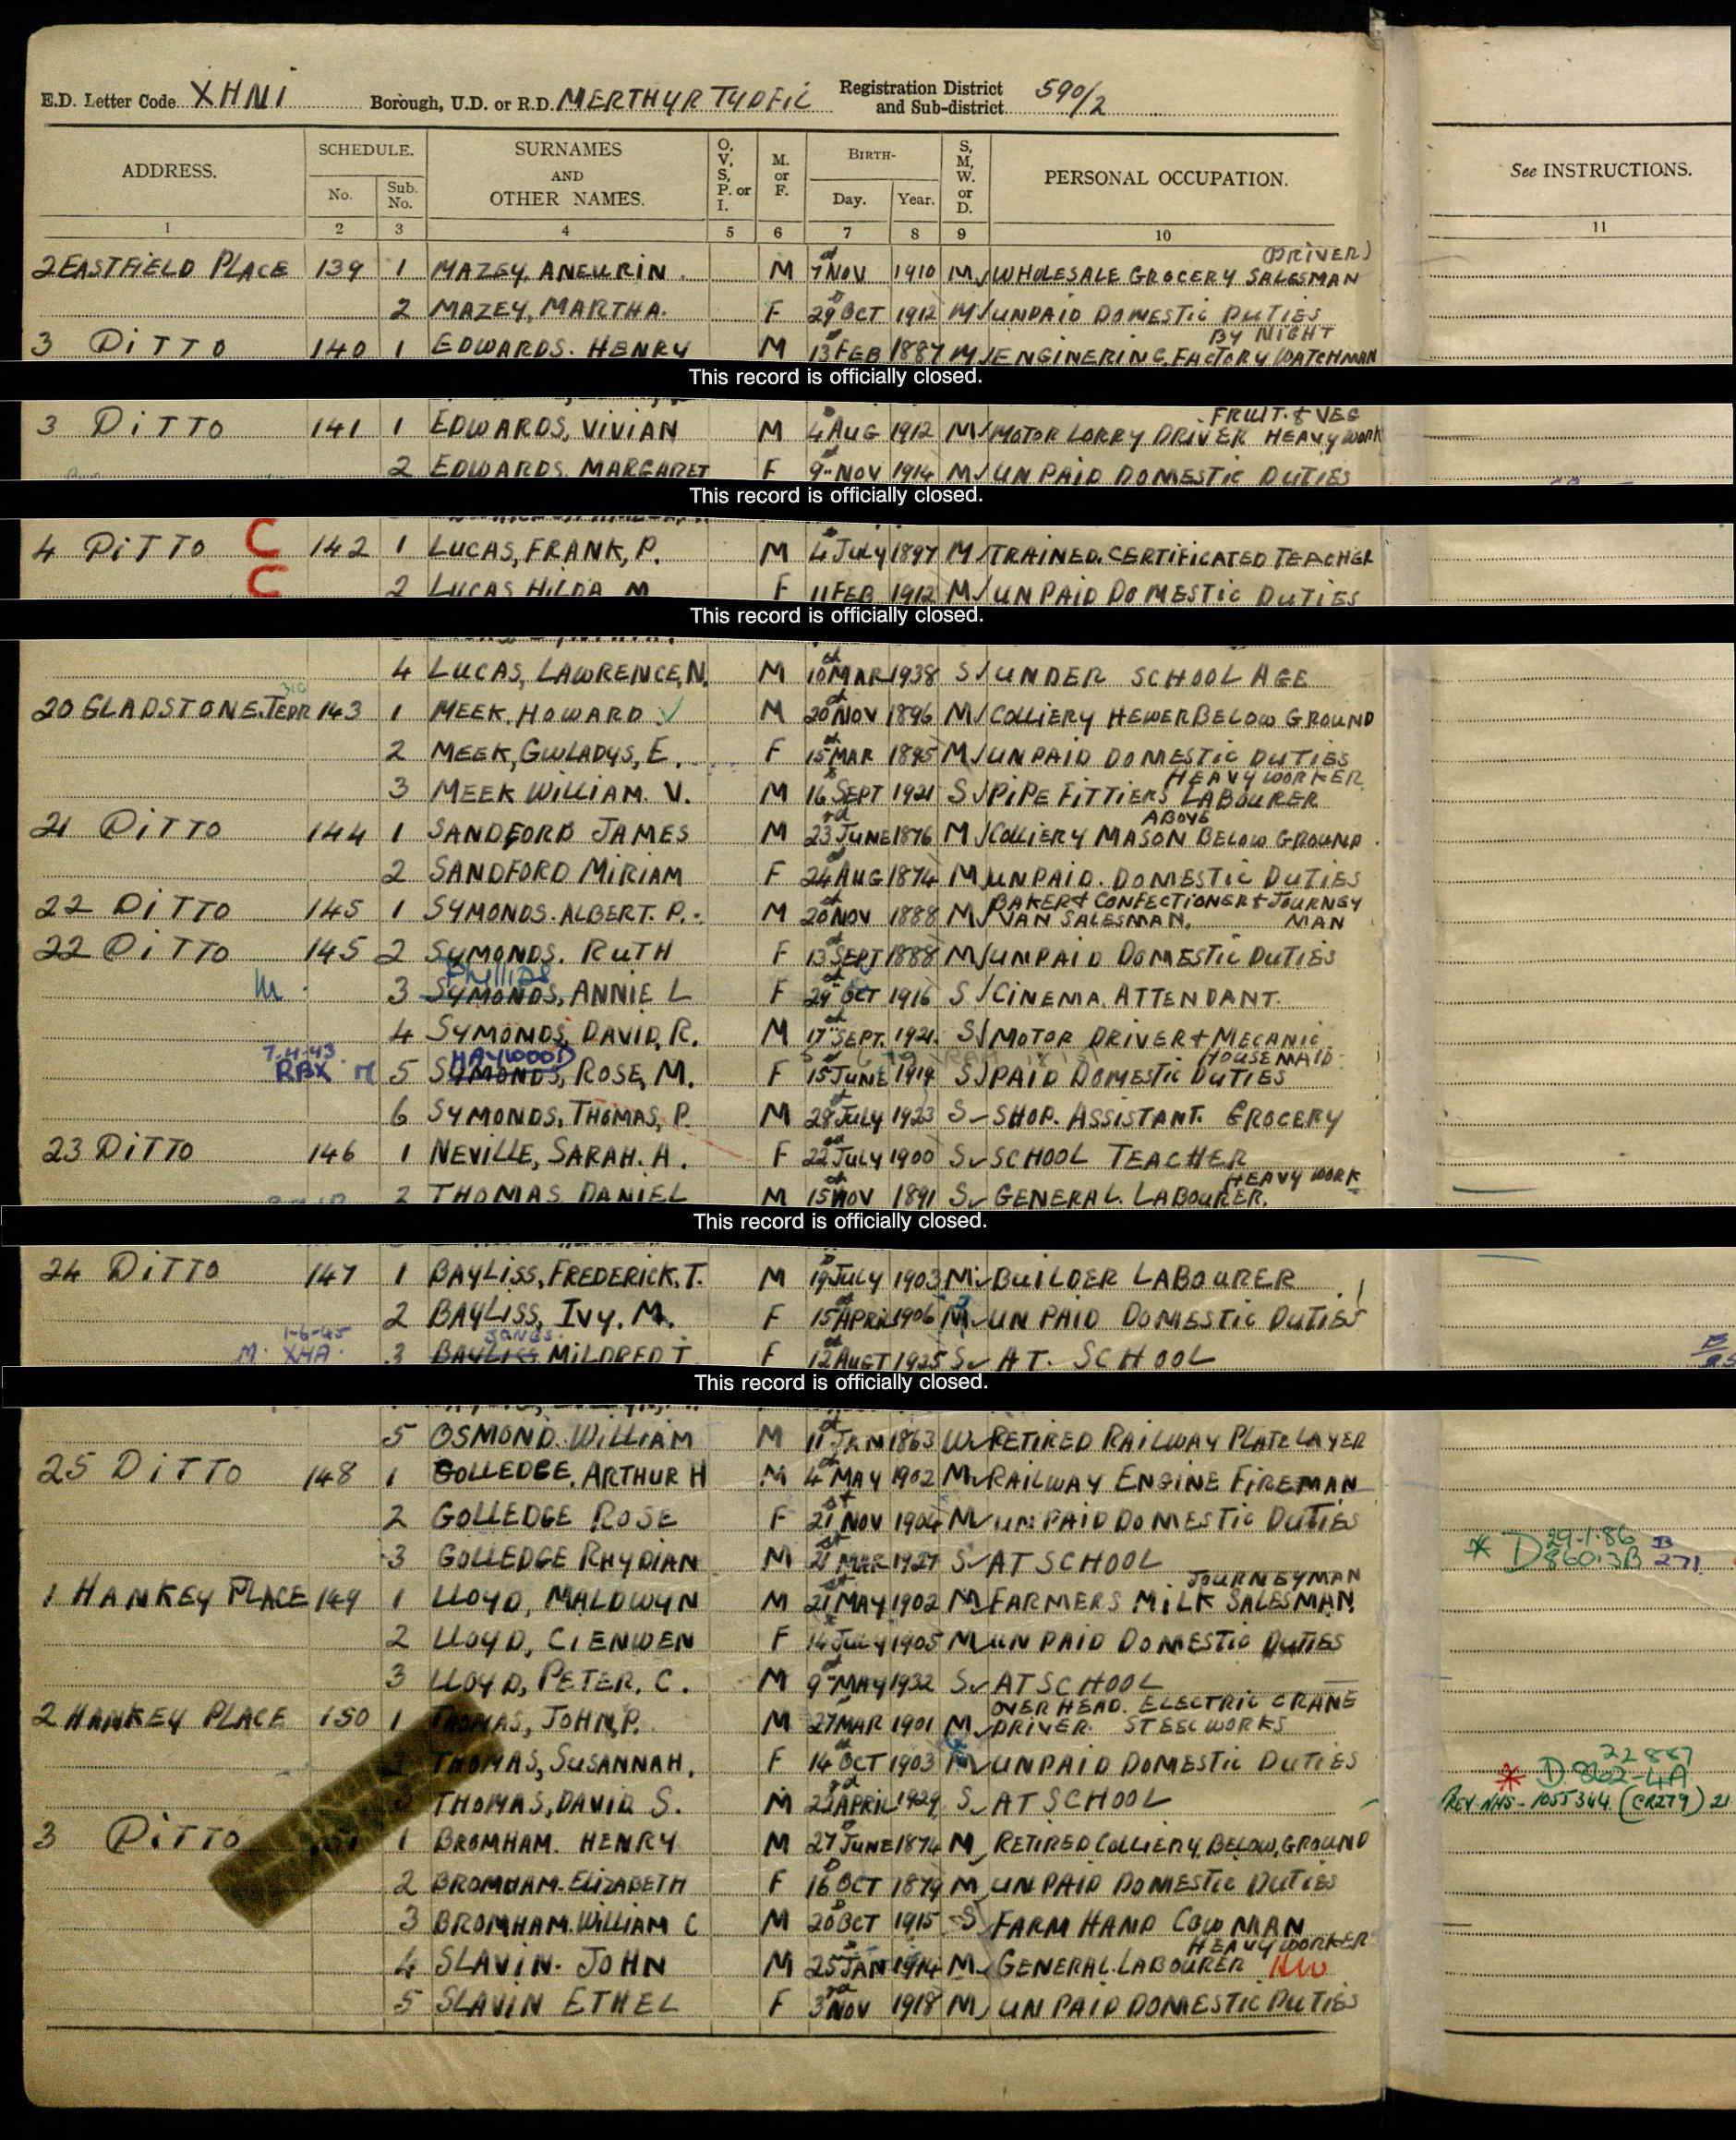 E.D. Letter Code XHNI Borough, U.D. or R.D. MERTHYR TYDFIL Registration District and Sub-district 590/2
ADDRESS. SCHEDULE. No. Sub. No. SURNAMES AND OTHER NAMES. O, V, S, P. or I. M. or F. BIRTH- Day. Year. S, M, W. or D. PERSONAL OCCUPATION. See INSTRUCTIONS.
1 2 3 4 5 6 7 8 9 10 11
(DRIVER)
2 EASTFIELD PLACE 139 1 MAZEY, ANEURIN. M 7 NOV 1910 M WHOLESALE GROCERY SALESMAN
2 MAZEY, MARTHA. F 29 OCT 1912 M UNPAID DOMESTIC DUTIES
BY NIGHT
3 DITTO 140 1 EDWARDS. HENRY M 13 FEB 1887 M ENGINERING FACTORY WATCHMAN
This record is officially closed.
FRUIT & VEG
3 DITTO 141 1 EDWARDS, VIVIAN M 4 AUG 1912 M MOTOR LORRY DRIVER HEAVY WORK
2 EDWARDS. MARGARET F 9 NOV 1914 M UNPAID DOMESTIC DUTIES
This record is officially closed.
4 DITTO C 142 1 LUCAS, FRANK, P. M 4 JULY 1897 M TRAINED. CERTIFICATED TEACHER
C 2 LUCAS HILDA M F 11 FEB 1912 M UNPAID DOMESTIC DUTIES
This record is officially closed.
4 LUCAS, LAWRENCE, N. M 10 MAR 1938 S UNDER SCHOOL AGE
20 GLADSTONE. TERR 143 1 MEEK. HOWARD M 20 NOV 1896 M COLLIERY HEWER BELOW GROUND
2 MEEK, GWLADYS, E. F 15 MAR 1895 M UNPAID DOMESTIC DUTIES
HEAVY WORKER
3 MEEK WILLIAM. V. M 16 SEPT 1921 S PIPE FITTIERS LABOURER
ABOVE
21 DITTO 144 1 SANDFORD JAMES M 23rd JUNE 1876 M COLLIERY MASON BELOW GROUND.
2 SANDFORD MIRIAM F 24 AUG 1874 M UNPAID. DOMESTIC DUTIES
BAKER & CONFECTIONER & JOURNEY
22 DITTO 145 1 SYMONDS. ALBERT. P. M 20 NOV 1888 M VAN SALESMAN, MAN
22 DITTO 145 2 SYMONDS. RUTH F 13 SEPT 1888 M UNPAID DOMESTIC DUTIES
PHILLIPS
M 3 SYMONDS, ANNIE L F 29 OCT 1916 S CINEMA. ATTENDANT.
4 SYMONDS, DAVID, R. M 17 SEPT. 1921 S MOTOR DRIVER & MECANIC
7.4.43. HAYWOOD HOUSEMAID
RBX M 5 SYMONDS, ROSE, M. F 15 JUNE 1919 S PAID DOMESTIC DUTIES
6 SYMONDS, THOMAS, P. M 28 JULY 1923 S SHOP. ASSISTANT. GROCERY
23 DITTO 146 1 NEVILLE, SARAH. A. F 22 JULY 1900 S SCHOOL TEACHER
HEAVY WORK
2 THOMAS DANIEL M 15 NOV 1891 S GENERAL. LABOURER.
This record is officially closed.
24 DITTO 147 1 BAYLISS, FREDERICK. T. M 19 JULY 1903 M BUILDER LABOURER
2 BAYLISS, IVY. M. F 15 APRIL 1906 M UNPAID DOMESTIC DUTIES
1-6-45 JONES.
M. XHA. 3 BAYLISS MILDRED T. F 12 AUGT 1925 S AT. SCHOOL
This record is officially closed.
5 OSMOND. WILLIAM M 11 JAN 1863 W RETIRED RAILWAY PLATE LAYER
25 DITTO 148 1 GOLLEDGE, ARTHUR H M 4 MAY 1902 M RAILWAY ENGINE FIREMAN
2 GOLLEDGE ROSE F 21st NOV 1904 M UNPAID DOMESTIC DUTIES
29.1.86
3 GOLLEDGE RHYDIAN M 21st MAR 1927 S AT SCHOOL * D86013B B 271
JOURNEYMAN
1 HANKEY PLACE 149 1 LLOYD, MALDWYN M 21st MAY 1902 M FARMERS MILK SALESMAN
2 LLOYD, CIENWEN F 14 JULY 1905 M UNPAID DOMESTIC DUTIES
3 LLOYD, PETER. C. M 9 MAY 1932 S AT SCHOOL
OVERHEAD. ELECTRIC CRANE
2 HANKEY PLACE 150 1 THOMAS, JOHN, P. M 27 MAR 1901 M DRIVER. STEELWORKS
THOMAS, SUSANNAH, F 14 OCT 1903 M UNPAID DOMESTIC DUTIES
22 887
* D.8602-4A
THOMAS, DAVID S. M 22 APRIL 1929 S AT SCHOOL REV. NHS - 1055344 (CR279) 21
3 DITTO 1 BROMHAM. HENRY M 27 JUNE 1874 M RETIRED COLLIERY, BELOW, GROUND
2 BROMHAM. ELIZABETH F 16 OCT 1879 M UNPAID DOMESTIC DUTIES
3 BROMHAM. WILLIAM C M 20 OCT 1915 S FARM HAND COWMAN
HEAVY WORKER
4 SLAVIN. JOHN M 25 JAN 1914 M GENERAL. LABOURER HW
5 SLAVIN ETHEL F 3rd NOV 1918 M UNPAID DOMESTIC DUTIES